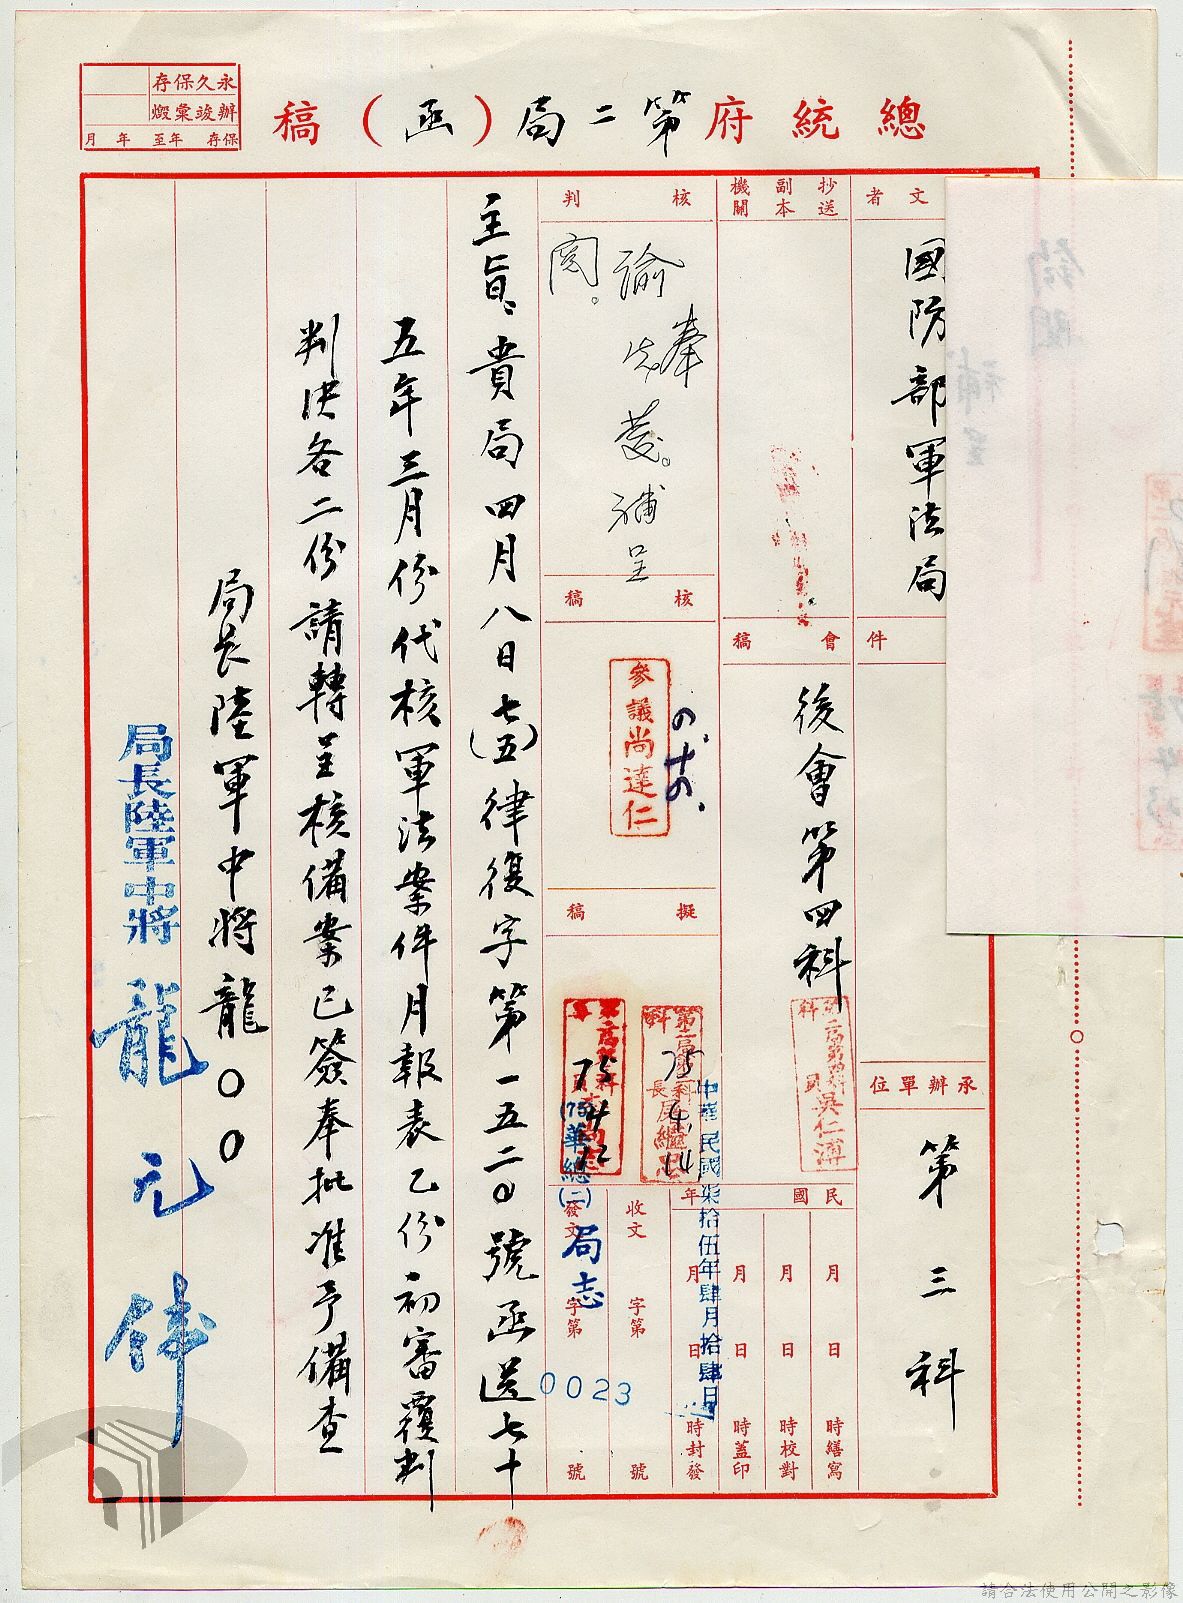 總統府第二局(函)稿
永久保存
辦竣彙燬
保存 年至 年 月
文者
國防部軍法局
件
承辦單位
第三科
抄送副本機關
會稿
後會第四科
第二局第四科科員吳仁溥
民國 年
月 日 時繕寫
月 日 時校對
月 日 時蓋印
月 日 時封發
中華民國柒拾伍年肆月拾肆日
核判
奉
諭先發。補呈
閱。
核稿
參議尚達仁
擬稿
75 4. 14
75 4 12
收文 字第 號
發文 字第 號
(75)華總(二)局志
0023
主旨：貴局四月八日七(五)律復字第一五二〇號函送七十
五年三月份代核軍法案件月報表乙份初審覆判
判決各二份請轉呈核備案已簽奉批准予備查
局長陸軍中將龍〇〇
局長陸軍中將龍元偉
請合法使用公開之影像